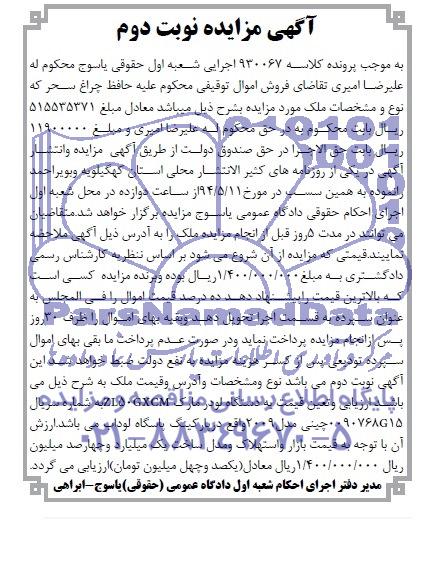 آگهی مزایده نوبت دوم
به موجب پرونده کلاسه ۹۳۰۰۶۷ اجرایی شعبه اول حقوقی یاسوج محکوم له
علیرضا امیری تقاضای فروش اموال توقیفی محکوم علیه حافظ چراغ سحر که
نوع و مشخصات ملک مورد مزایده بشرح ذیل میباشد معادل مبلغ ۵۱۵۵۳۵۳۷۱
ریال بابت محکوم به در حق محکوم له علیرضا امیری و مبلغ ۱۱۹۰۰۰۰۰
ریال بابت حق الاجرا در حق صندوق دولت از طریق آگهی مزایده وانتشار
آگهی در یکی از روزنامه های کثیر الانتشار محلی استان کهگیلویه وبویراحمد
رانموده به همین سبب در مورخ ۹۴/۵/۱۱از ساعت دوازده در محل شعبه اول
اجرای احکام حقوقی دادگاه عمومی یاسوج مزایده برگزار خواهد شد.متقاضیان
می توانند در مدت ۵روز قبل از انجام مزایده ملک را به آدرس ذیل آگهی ملاحضه
نمایند.قیمتی که مزایده از آن شروع می شود بر اساس نظریه کارشناس رسمی
دادگشتری به مبلغ۱/۴۰۰/۰۰۰/۰۰۰ریال بوده وبرنده مزایده کسی است
که بالاترین قیمت راپیشنهاد دهد ده درصد قیمت اموال را فی المجلس به
عنوان سپرده به قسمت اجرا تحویل دهد وبقیه بهای اموال را ظرف ۳۰روز
پس ازانجام مزایده پرداخت نماید ودر صورت عدم پرداخت ما بقی بهای اموال
سپرده تودیعی پس از کسر هزینه مزایده به نفع دولت ضبط خواهد شد این
آگهی نوبت دوم می باشد نوع ومشخصات وآدرس وقیمت ملک به شرح ذیل می
باشد ارزیابی وتعین قیمت یه دستگاه لودر مارک ZL50GXCM به شماره سریال
۰۰۹۰۷۶۸G۱۵چینی مدل ۲۰۰۹واقع درپارکینگ پاسگاه لوداب می باشد.ارزش
آن با توجه به قیمت بازار واستهلاک ومدل ساخت یک میلیارد وچهارصد میلیون
ریال ۱/۴۰۰/۰۰۰/۰۰۰ریال معادل(یکصد وچهل میلیون تومان)ارزیابی می گردد.
مدیر دفتر اجرای احکام شعبه اول دادگاه عمومی (حقوقی)یاسوج-ابراهی
ParsNamadData
پایگاه اطلاع رسانی مناقصه و مزایده
۰۲۱-۸۸۳۴۹۶۷۰-۵